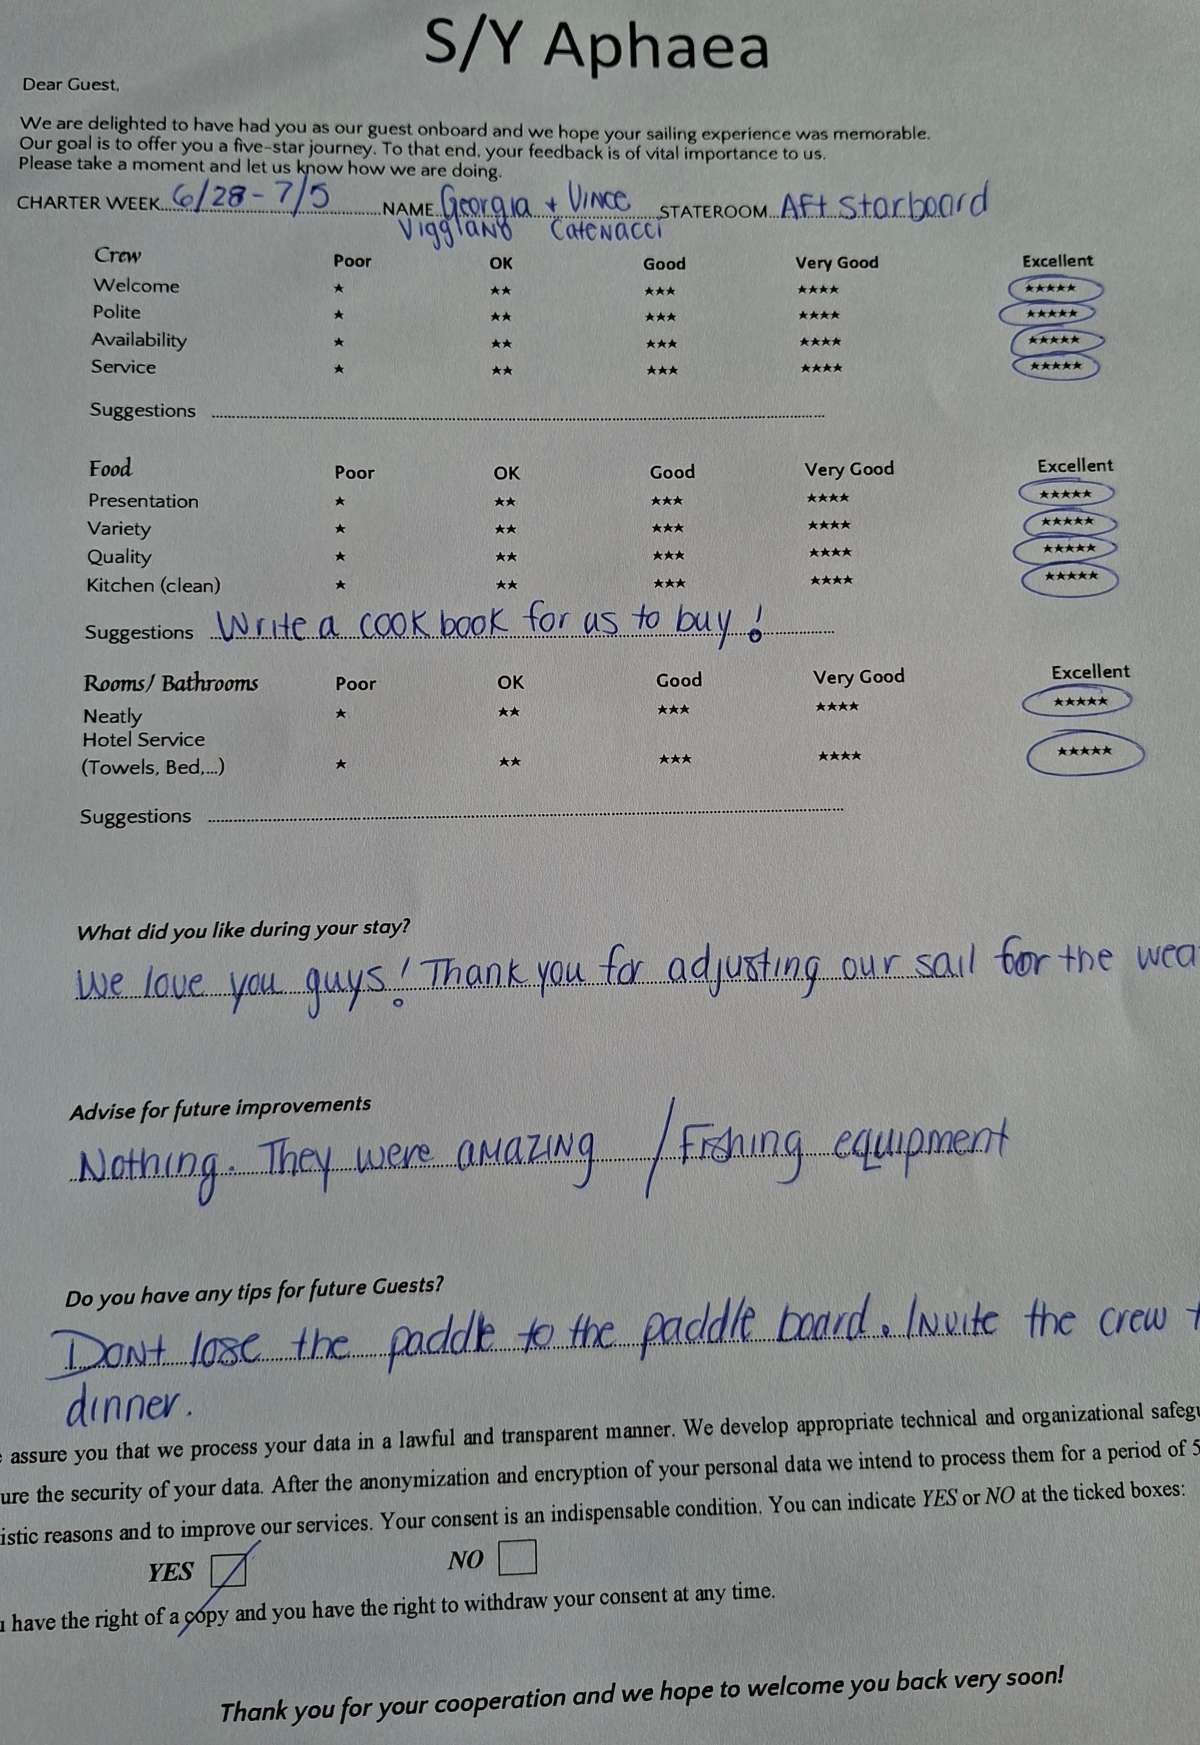 S/Y Aphaea
Dear Guest,
We are delighted to have had you as our guest onboard and we hope your sailing experience was memorable.
Our goal is to offer you a five-star journey. To that end, your feedback is of vital importance to us.
Please take a moment and let us know how we are doing.
CHARTER WEEK 6/28 - 7/5 NAME Georgia + Vince STATEROOM Aft Starboard
Viggiano Catenacci
Crew Poor OK Good Very Good Excellent
Welcome ★ ★★ ★★★ ★★★★ ★★★★★
Polite ★ ★★ ★★★ ★★★★ ★★★★★
Availability ★ ★★ ★★★ ★★★★ ★★★★★
Service ★ ★★ ★★★ ★★★★ ★★★★★
Suggestions
Food Poor OK Good Very Good Excellent
Presentation ★ ★★ ★★★ ★★★★ ★★★★★
Variety ★ ★★ ★★★ ★★★★ ★★★★★
Quality ★ ★★ ★★★ ★★★★ ★★★★★
Kitchen (clean) ★ ★★ ★★★ ★★★★ ★★★★★
Suggestions Write a cook book for us to buy!
Rooms/ Bathrooms Poor OK Good Very Good Excellent
Neatly ★ ★★ ★★★ ★★★★ ★★★★★
Hotel Service
(Towels, Bed,...) ★ ★★ ★★★ ★★★★ ★★★★★
Suggestions
What did you like during your stay?
We love you guys! Thank you for adjusting our sail for the wea
Advise for future improvements
Nothing. They were amazing / Fishing equipment
Do you have any tips for future Guests?
Dont lose the paddle to the paddle board. Invite the crew t
dinner.
e assure you that we process your data in a lawful and transparent manner. We develop appropriate technical and organizational safegu
ure the security of your data. After the anonymization and encryption of your personal data we intend to process them for a period of 5
istic reasons and to improve our services. Your consent is an indispensable condition. You can indicate YES or NO at the ticked boxes:
YES NO
u have the right of a copy and you have the right to withdraw your consent at any time.
Thank you for your cooperation and we hope to welcome you back very soon!